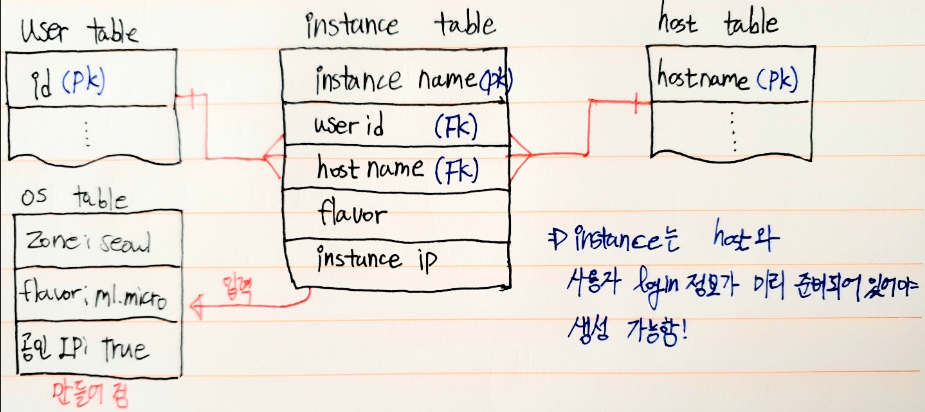 user table
id (PK)
instance table
instance name (pk)
user id (FK)
host name (FK)
flavor
instance ip
host table
hostname (PK)
os table
zone: seoul
flavor: ml.micro
공인 IP: true
만들어 짐
입력
⇒ instance는 host와
사용자 login 정보가 미리 준비되어 있어야
생성 가능함!